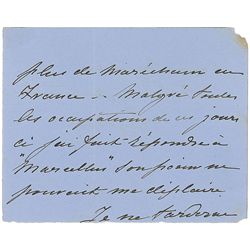 plus de Maréchaux en
France – Malgré toutes
les occupations de ces jours
ci j'ai fait répondre à
"Marcellus" son poëme ne
pouvait me déplaire.
Je ne tarderai